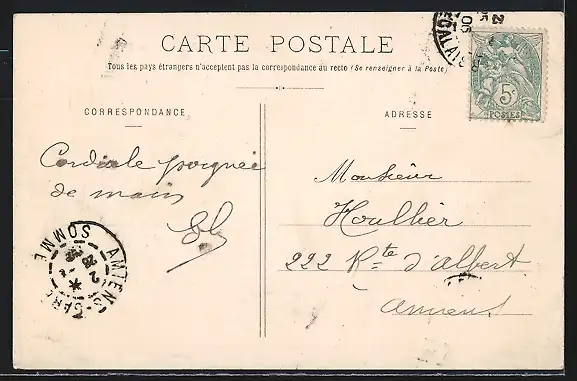 CARTE POSTALE
Tous les pays étrangers n'acceptent pas la correspondance au recto (Se renseigner à la Poste)
CORRESPONDANCE
ADRESSE
5c
POSTES
Cordiale poignée
de main
Monsieur
Houllier
222 Rte d'Albert
Amiens
AMIENS-GARE
SOMME